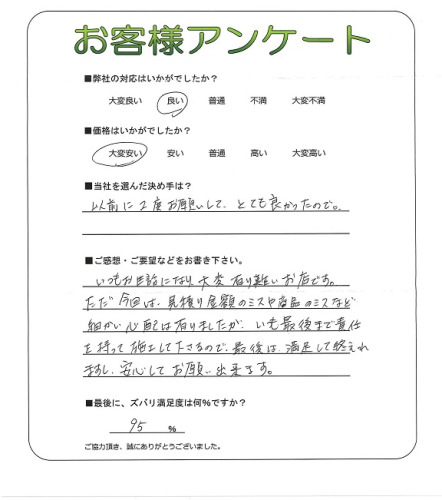 お客様アンケート
■弊社の対応はいかがでしたか？
大変良い 良い 普通 不満 大変不満
■価格はいかがでしたか？
大変安い 安い 普通 高い 大変高い
■当社を選んだ決め手は？
以前に2度お願いして、とても良かったので。
■ご感想・ご要望などをお書き下さい。
いつもお世話になり、大変有り難いお店です。
ただ今回は、見積り金額のミスや商品のミスなど
細かい心配は有りましたが、いつも最後まで責任
を持って施工して下さるので、最後は、満足して終えれ
ますし、安心してお願い出来ます。
■最後に、ズバリ満足度は何％ですか？
95 ％
ご協力頂き、誠にありがとうございました。